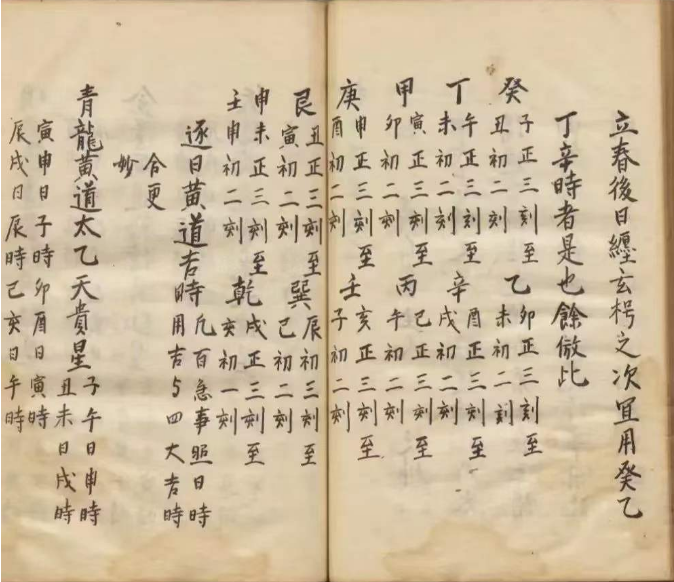 立春後日纏玄枵之次宜用癸乙
丁辛時者是也餘倣此
癸子正三刻至丑初二刻乙卯正三刻至未初二刻
丁午正三刻至未初二刻辛酉正三刻至戌初二刻
甲寅正三刻至卯初二刻丙巳正三刻至午初二刻
庚申正三刻至酉初二刻壬亥正三刻至子初二刻
艮丑正三刻至寅初二刻巽辰初三刻至巳初二刻
申未正三刻至
壬申初二刻乾戌正三刻至亥初一刻
逐日黃道吉時凡百急事照日時用吉与四大吉時
合更
妙
青龍黃道太乙天貴星子午日申時丑未日戌時
寅申日子時卯酉日寅時
辰戌日辰時己亥日午時